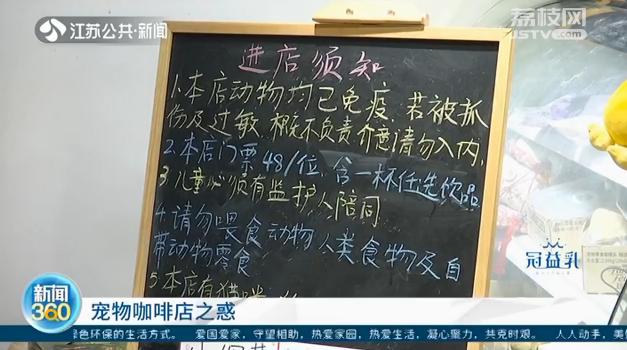 江苏公共·新闻
荔枝网
JSTV.com
进店须知
1.本店动物均已免疫,若被抓
伤及过敏,概不负责,介意请勿入内,
2.本店门票48/位,含一杯任选饮品
3.儿童必须有监护人陪同
4.请勿喂食动物人类食物及自
带动物零食
5.本店有猫咪
冠益乳
新闻
360
宠物咖啡店之惑
绿色环保的生活方式。 爱国爱家,守望相助,热爱家园,热爱生活,凝心聚力,共克时艰。 人人动手,美